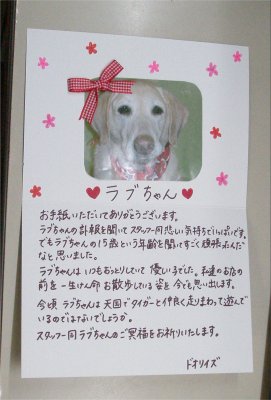 ♥ラブちゃん♥
お手紙いただいてありがとうございます。
ラブちゃんの訃報を聞いてスタッフ一同悲しい気持ちでいっぱいです。
でもラブちゃんの15歳という年齢を聞いてすごく頑張ったんだ
なと思いました。
ラブちゃんはいつもおっとりしていて優しい子でした。私達のお店の
前を一生けん命お散歩している姿を今でも思い出します。
今頃ラブちゃんは天国でタイガーと仲良く走りまわって遊んで
いるのではないでしょうか。
スタッフ一同ラブちゃんのご冥福をお祈りいたします。
ドオリイズ